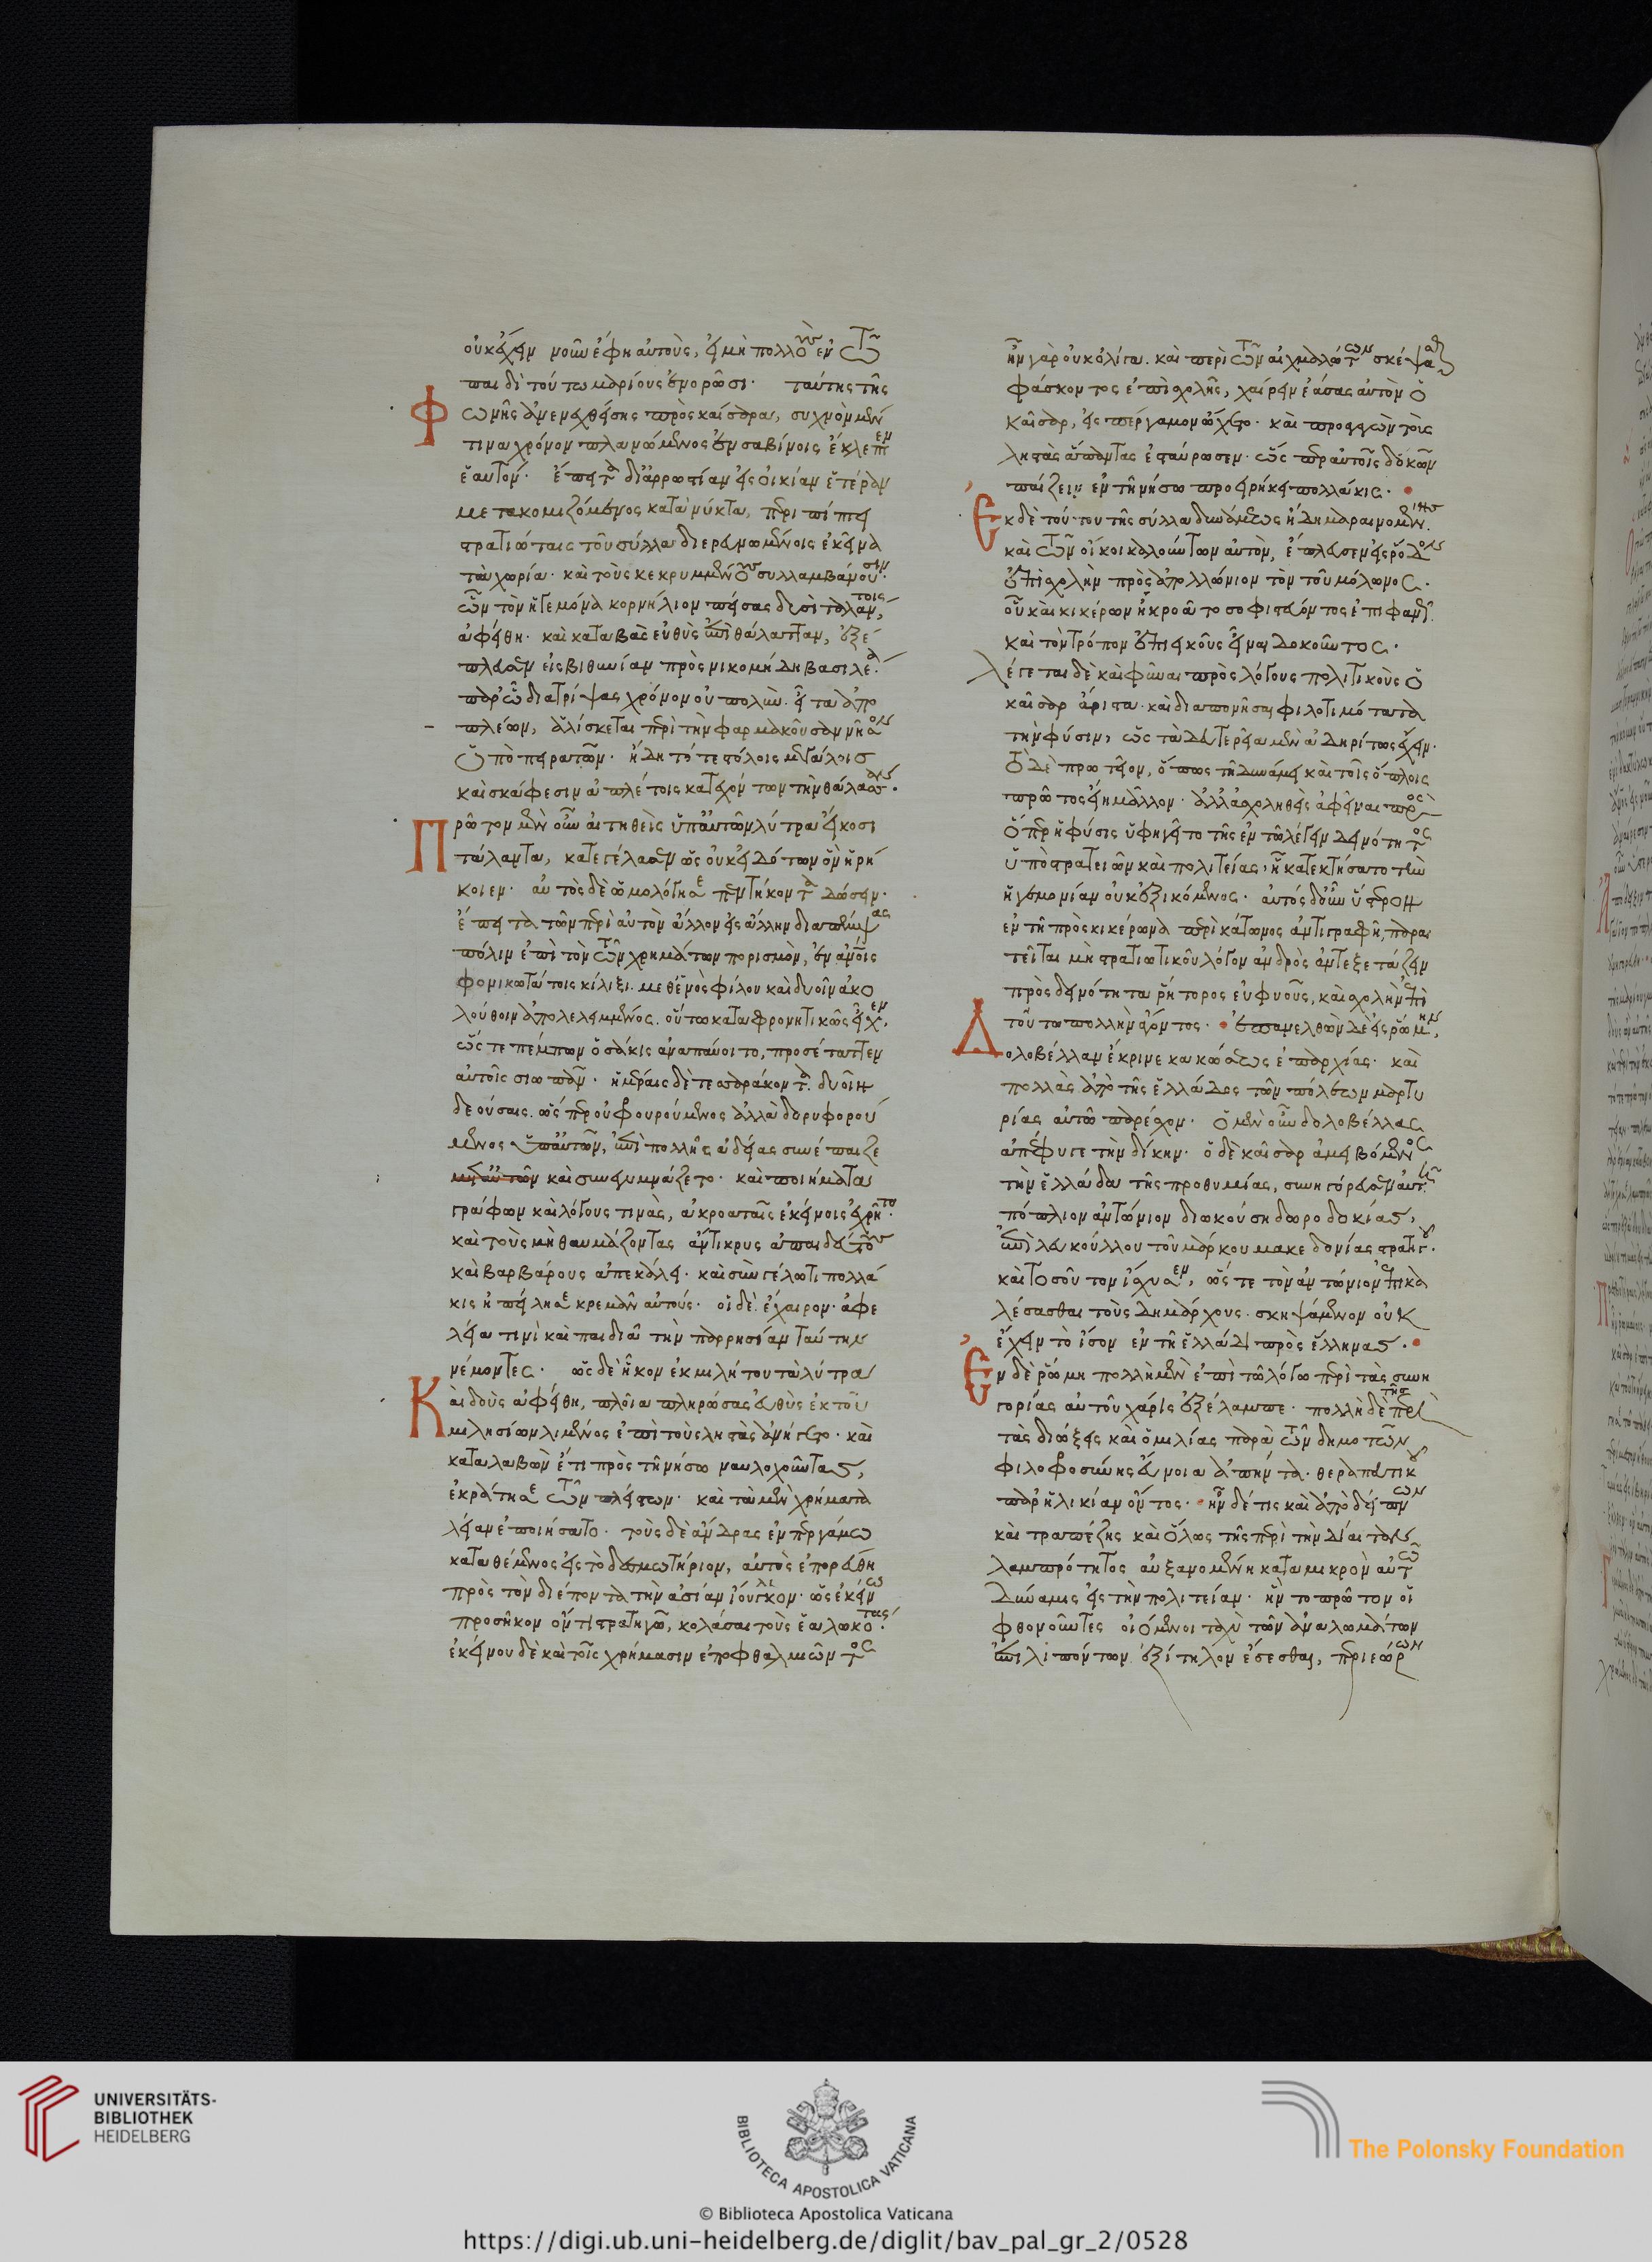 οὐκ ἔχειν νοῦν ἔφη αὐτούς, εἰ μὴ πολλοὺς ἐν τῶ
παιδὶ τούτω μαρίους ἐνορῶσι. ταύτης τῆς
φωνῆς ἀνενεχθείσης πρὸς καίσαρα, συχνὸν μὲν
τινα χρόνον πλανώμενος ἐν σαβίνοις ἔκλεπτεν
ἑαυτόν. ἔπειτα δι' ἀρρωστίαν εἰς οἰκίαν ἑτέραν
μετακομιζόμενος κατὰ νύκτα, περιπίπτει
στρατιώταις τοῦ σύλλα διερευνωμένοις ἐκεῖνα
τὰ χωρία. καὶ τοὺς κεκρυμμένους συλλαμβάνουσιν.
ὧν τὸν ἡγεμόνα κορνήλιον πείσας δυσὶ ταλάντοις,
ἀφείθη. καὶ καταβὰς εὐθὺς ἐπὶ θάλατταν, ἐξέ
πλευσεν εἰς βιθυνίαν πρὸς νικομήδη βασιλέα.
παρ' ὧ διατρίψας χρόνον οὐ πολύν. εἶτα ἀπο
πλέων, ἁλίσκεται περὶ τὴν φαρμακοῦσαν νῆσον
ὑπὸ πειρατῶν. ἤδη τότε στόλοις μεγάλοις
καὶ σκάφεσιν ἀπλέτοις κατεχόντων τὴν θάλασσαν.
Πρῶτον μὲν οὖν αἰτηθεὶς ὑπ' αὐτῶν λύτρα εἴκοσι
τάλαντα, κατεγέλασεν ὡς οὐκ εἰδότων ὃν ἡρή
κοιεν. αὐτὸς δὲ ὡμολόγησε πεντήκοντα δώσειν.
ἔπειτα τῶν περὶ αὐτὸν ἄλλον εἰς ἄλλην διαπέμψας
πόλιν ἐπὶ τὸν τῶν χρημάτων πορισμόν, ἐν ἀνθρώποις
φονικωτάτοις κίλιξι. μεθ' ἑνὸς φίλου καὶ δυοῖν ἀκο
λούθοιν ἀπολελειμμένος. οὕτω καταφρονητικῶς εἶχεν,
ὥστε πέμπων ὁσάκις ἀναπαύοιτο, προσέταττεν
αὐτοῖς σιωπᾶν. ἡμέραις δὲ τεσσαράκοντα δυοῖν
δεούσαις. ὥσπερ οὐ φρουρούμενος ἀλλὰ δορυφορού
μενος ὑπ' αὐτῶν, ἐπὶ πολλῆς ἀδείας συνέπαιζε
καὶ συνεγυμνάζετο. καὶ ποιήματα
γράφων καὶ λόγους τινάς, ἀκροαταῖς ἐκείνοις ἐχρῆτο.
καὶ τοὺς μὴ θαυμάζοντας ἄντικρυς ἀπαιδεύτους
καὶ βαρβάρους ἀπεκάλει. καὶ σὺν γέλωτι πολλά
κις ἠπείλησε κρεμᾶν αὐτούς. οἱ δὲ ἔχαιρον. ἀφε
λεία τινὶ καὶ παιδιᾶ τὴν παρρησίαν ταύτην
νέμοντες. ὡς δὲ ἧκον ἐκ μιλήτου τὰ λύτρα
Καὶ δοὺς ἀφείθη, πλοῖα πληρώσας εὐθὺς ἐκ τοῦ
μιλησίων λιμένος ἐπὶ τοὺς ληστὰς ἀνήγετο. καὶ
καταλαβὼν ἔτι πρὸς τῆ νήσω ναυλοχοῦντας,
ἐκράτησε τῶν πλείστων. καὶ τὰ μὲν χρήματα
λείαν ἐποιήσατο. τοὺς δὲ ἄνδρας ἐν περγάμω
καταθέμενος εἰς τὸ δεσμωτήριον, αὐτὸς ἐπορεύθη
πρὸς τὸν διέποντα τὴν ἀσίαν ἰούγκον. ὡς ἐκείνω
προσῆκον ὄντι στρατηγῶ, κολάσαι τοὺς ἑαλωκότας.
ἐκείνου δὲ καὶ τοῖς χρήμασιν ἐποφθαλμιῶντος
ἦν γὰρ οὐκ ὀλίγα. καὶ περὶ τῶν αἰχμαλώτων σκέψασθαι
φάσκοντος ἐπὶ σχολῆς, χαίρειν ἐάσας αὐτὸν ὁ
καῖσαρ, εἰς πέργαμον ὤχετο. καὶ προαγαγὼν τοὺς
ληστὰς ἅπαντας ἐσταύρωσεν. ὥσπερ αὐτοῖς δοκῶν
παίζειν ἐν τῆ νήσω προειρήκει πολλάκις.
Ἐκ δὲ τούτου τῆς σύλλα δυνάμεως ἤδη μαραινομένης.
καὶ τῶν οἴκοι καλούντων αὐτόν, ἔπλευσεν εἰς ῥόδον
ἐπὶ σχολὴν πρὸς ἀπολλώνιον τὸν τοῦ μόλωνος.
οὗ καὶ κικέρων ἠκροᾶτο σοφιστεύοντος ἐπιφανῶς
καὶ τὸν τρόπον ἐπιεικοῦς εἶναι δοκοῦντος.
λέγεται δὲ καὶ φῦναι πρὸς λόγους πολιτικοὺς ὁ
καῖσαρ ἄριστα. καὶ διαπονῆσαι φιλοτιμότατα
τὴν φύσιν, ὡς τὰ δευτερεῖα μὲν ἀδηρίτως ἔχειν.
τὸ δὲ πρωτεῖον, ὅπως τῆ δυνάμει καὶ τοῖς ὅπλοις
πρῶτος εἴη μᾶλλον. ἀλλ' ἀσχοληθεὶς ἀφεῖναι πρὸς
ὅπερ ἡ φύσις ὑφηγεῖτο τῆς ἐν τῶ λέγειν δεινότητος
ὑπὸ στρατειῶν καὶ πολιτείας, ἧ κατεκτήσατο τὴν
ἡγεμονίαν οὐκ ἐξικόμενος. αὐτὸς δ' οὖν ὕστερον
ἐν τῆ πρὸς κικέρωνα περὶ κάτωνος ἀντιγραφῆ, παραι
τεῖται μὴ στρατιωτικοῦ λόγον ἀνδρὸς ἀντεξετάζειν
πρὸς δεινότητα ῥήτορος εὐφυοῦς, καὶ σχολὴν ἐπὶ
τοῦτο πολλὴν ἄγοντος. ἐπανελθὼν δὲ εἰς ῥώμην,
Δολοβέλλαν ἔκρινε κακώσεως ἐπαρχίας. καὶ
πολλὰς ἀπὸ τῆς ἑλλάδος τῶν πόλεων μαρτυ
ρίας αὐτῶ παρέσχον. ὁ μὲν οὖν δολοβέλλας
ἀπέφυγε τὴν δίκην. ὁ δὲ καῖσαρ ἀμειβόμενος
τὴν ἑλλάδα τῆς προθυμίας, συνηγόρευσεν αὐτῆ
πόπλιον ἀντώνιον διωκούση δωροδοκίας,
ἐπὶ λευκούλλου τοῦ μάρκου μακεδονίας στρατηγοῦ.
καὶ τοσοῦτον ἴσχυσεν, ὥστε τὸν ἀντώνιον ἐπικα
λέσασθαι τοὺς δημάρχους. σκηψάμενον οὐκ
ἔχειν τὸ ἴσον ἐν τῆ ἑλλάδι πρὸς ἕλληνας.
Ἐν δὲ ῥώμη πολλὴ μὲν ἐπὶ τῶ λόγω περὶ τὰς συνη
γορίας αὐτοῦ χάρις ἐξέλαμπε. πολλὴ δὲ τῆς περὶ
τὰς διώξεις καὶ ὁμιλίας παρὰ τῶν δημοτῶν
φιλοφροσύνης εὔνοια ἀπήντα. θεραπευτικοῦ
παρ' ἡλικίαν ὄντος. ἦν δέ τις καὶ ἀπὸ δείπνων
καὶ τραπέζης καὶ ὅλως τῆς περὶ τὴν δίαιταν
λαμπρότητος αὐξανομένη κατὰ μικρὸν αὐτῶ
δύναμις εἰς τὴν πολιτείαν. ἣν τὸ πρῶτον οἱ
φθονοῦντες οἰόμενοι ταχὺ τῶν ἀναλωμάτων
ἐπιλιπόντων ἐξίτηλον ἔσεσθαι, περιεώρων
UNIVERSITÄTS-
BIBLIOTHEK
HEIDELBERG
BIBLIOTECA APOSTOLICA VATICANA
The Polonsky Foundation
© Biblioteca Apostolica Vaticana
https://digi.ub.uni-heidelberg.de/diglit/bav_pal_gr_2/0528